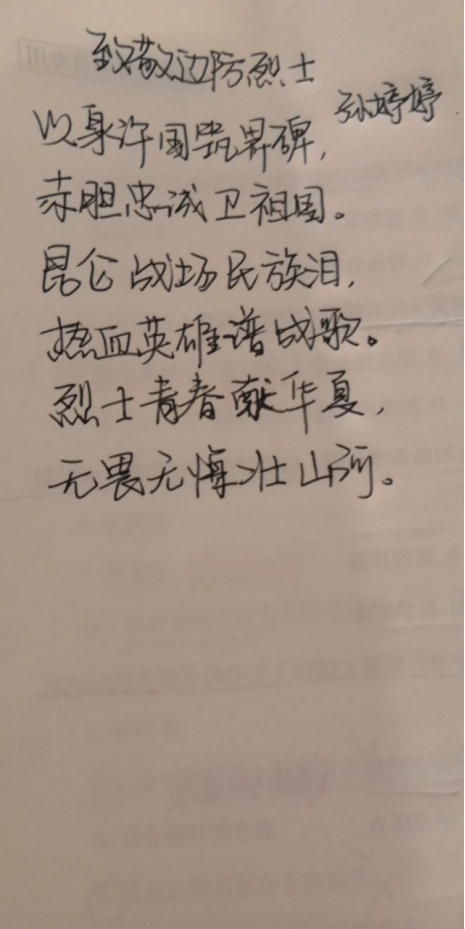 致敬边防烈士
孙婷婷
以身许国筑界碑，
赤胆忠诚卫祖国。
昆仑战场民族泪，
热血英雄谱战歌。
烈士青春献华夏，
无畏无悔壮山河。